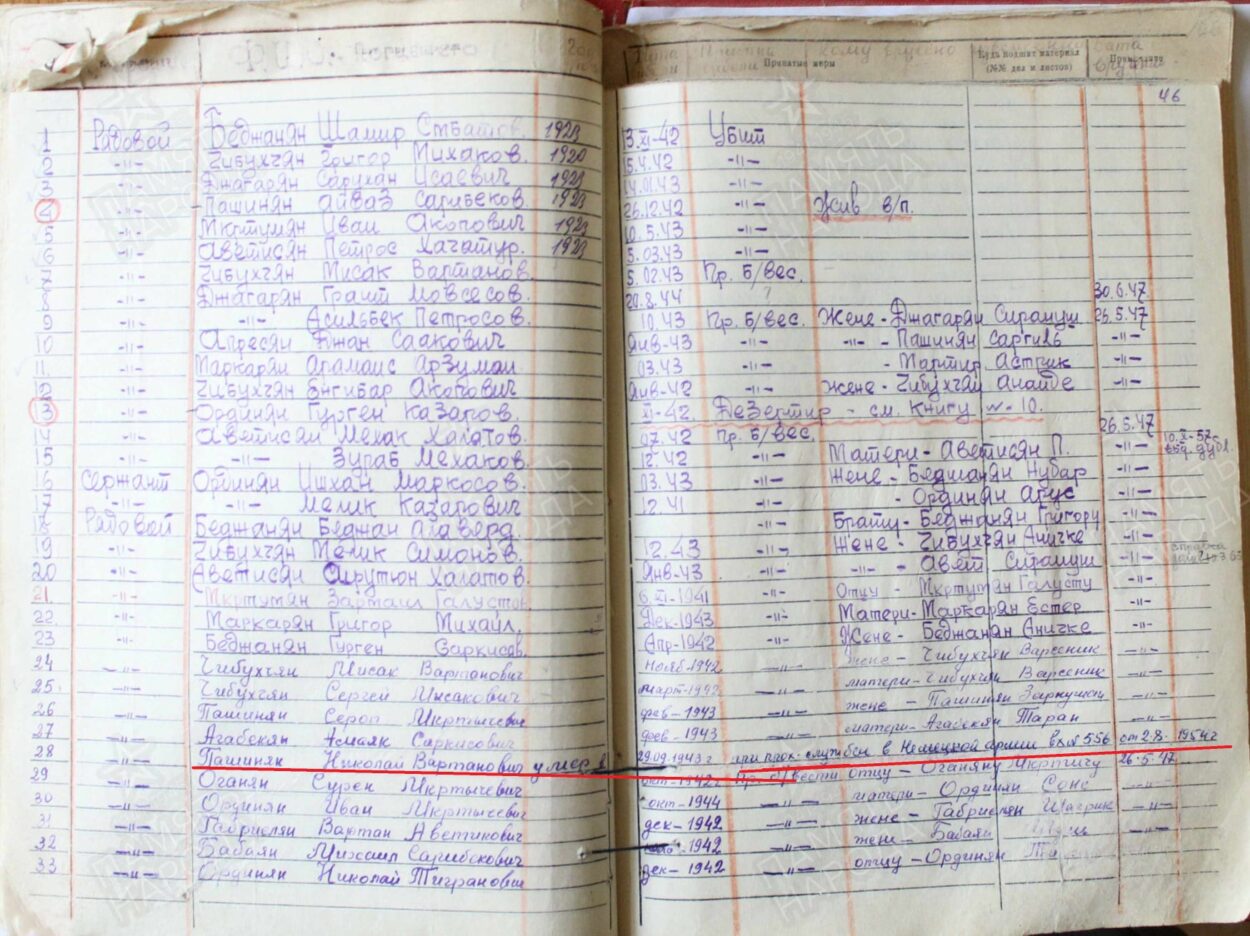 Ф.И.О. погибшего
Принятые меры кому вручено Куда подшит материал (№№ дел и листов) Примечание
46
1 Рядовой Беджанян Шамир Смбатов. 1923 3.XI-42 Убит
2 -"- Чибухчян Григор Михаков. 1920 5.4.42 -"-
3 -"- Джагарян Сарухан Исаевич 1923 14.01.43 -"-
4 -"- Пашинян Айваз Сарибеков. 1923 26.12.42 -"- Жив в/п.
5 -"- Мкртумян Иван Акопович 1923 10.5.43 -"-
6 -"- Аветисян Петрос Хачатур. 1923 5.03.43 -"-
7 -"- Чибухчян Мисак Вартанов. 5.02.43 Пр. б/вес.
8 -"- Джагарян Грант Мовсесов. 29.8.44 30.6.47
9 -"- -"- Асильбек Петросов. 10.43 Пр. б/вес. Жене - Джагарян Сирануш 26.5.47
10 -"- Апресян Джан Саакович Янв-43 -"- -"- - Пашинян Саргиль -"-
11. -"- Маркарян Арамаис Арзуман 03.43 -"- - Мартир. Астрик -"-
12 -"- Чибухчян Енгибар Акопович Янв-42 -"- Жене - Чибухчян Анаиде -"-
13 -"- Ординян Гурген Казаров. XI-42 Дезертир - см. книгу №-10.
14 -"- Аветисян Мехак Халатов. 07.42 Пр. б/вес. 26.5.47
15 -"- -"- Зураб Мехаков. 12.42 -"- Матери - Аветисян П. -"- 10.X-57
16 Сержант Ординян Ишхан Маркосов. 03.43 -"- Жене - Беджанян Нубар -"-
17 -"- -"- Мелик Казарович 12.41 -"- - Ординян Агус -"-
18 Рядовой Беджанян Беджан -"- Брату - Беджанян Григору -"-
19 -"- Чибухчян Мелик Симонов. 12.43 -"- Жене - Чибухчян Аничке -"- справка
20 -"- Аветисян Арутюн Халатов. Янв-43 -"- -"- - Авет. Сирануш -"-
21 -"- Мкртумян Зармаил Галустов 6.XI-1941 -"- Отцу - Мкртумян Галусту -"-
22. -"- Маркарян Григор Михаил. Дек-1943 -"- Матери - Маркарян Естер -"-
23 -"- Беджанян Гурген Саркисов. Апр-1942 -"- Жене - Беджанян Аничке -"-
24 -"- Чибухчян Мисак Вартанович Нояб-1942 -"- жене - Чибухчян Варсеник -"-
25. -"- Чибухчян Сергей Мисакович март-1942 -"- матери - Чибухчян Варсеник -"-
26 -"- Пашинян Сероп Мкртычевич фев-1943 -"- жене - Пашинян -"-
27 -"- Агабекян Асмаяк Саркисович фев-1943 -"- матери - Агабекян Таран -"-
28 -"- Пашинян Николай Вартанович умер в 29.09.1943 г при прох. службы в Немецкой армии вх № 556 от 2.8-1954 г
29 -"- Оганян Сурен Мкртычевич окт-1942 г Пр. б/вести отцу - Оганяну Мкртичу 26-5-47
30 -"- Ординян Иван Мкртычевич окт-1944 -"- матери - Ординян Соне -"-
31 -"- Габриелян Вартан Аветикович дек-1942 -"- жене - Габриелян Шагрик -"-
32 -"- Бабаян Михаил Сарибекович 1942 -"- жене - Бабаян -"-
33 -"- Ординян Николай Тигранович дек-1942 -"- отцу - Ординян
ПАМЯТЬ НАРОДА